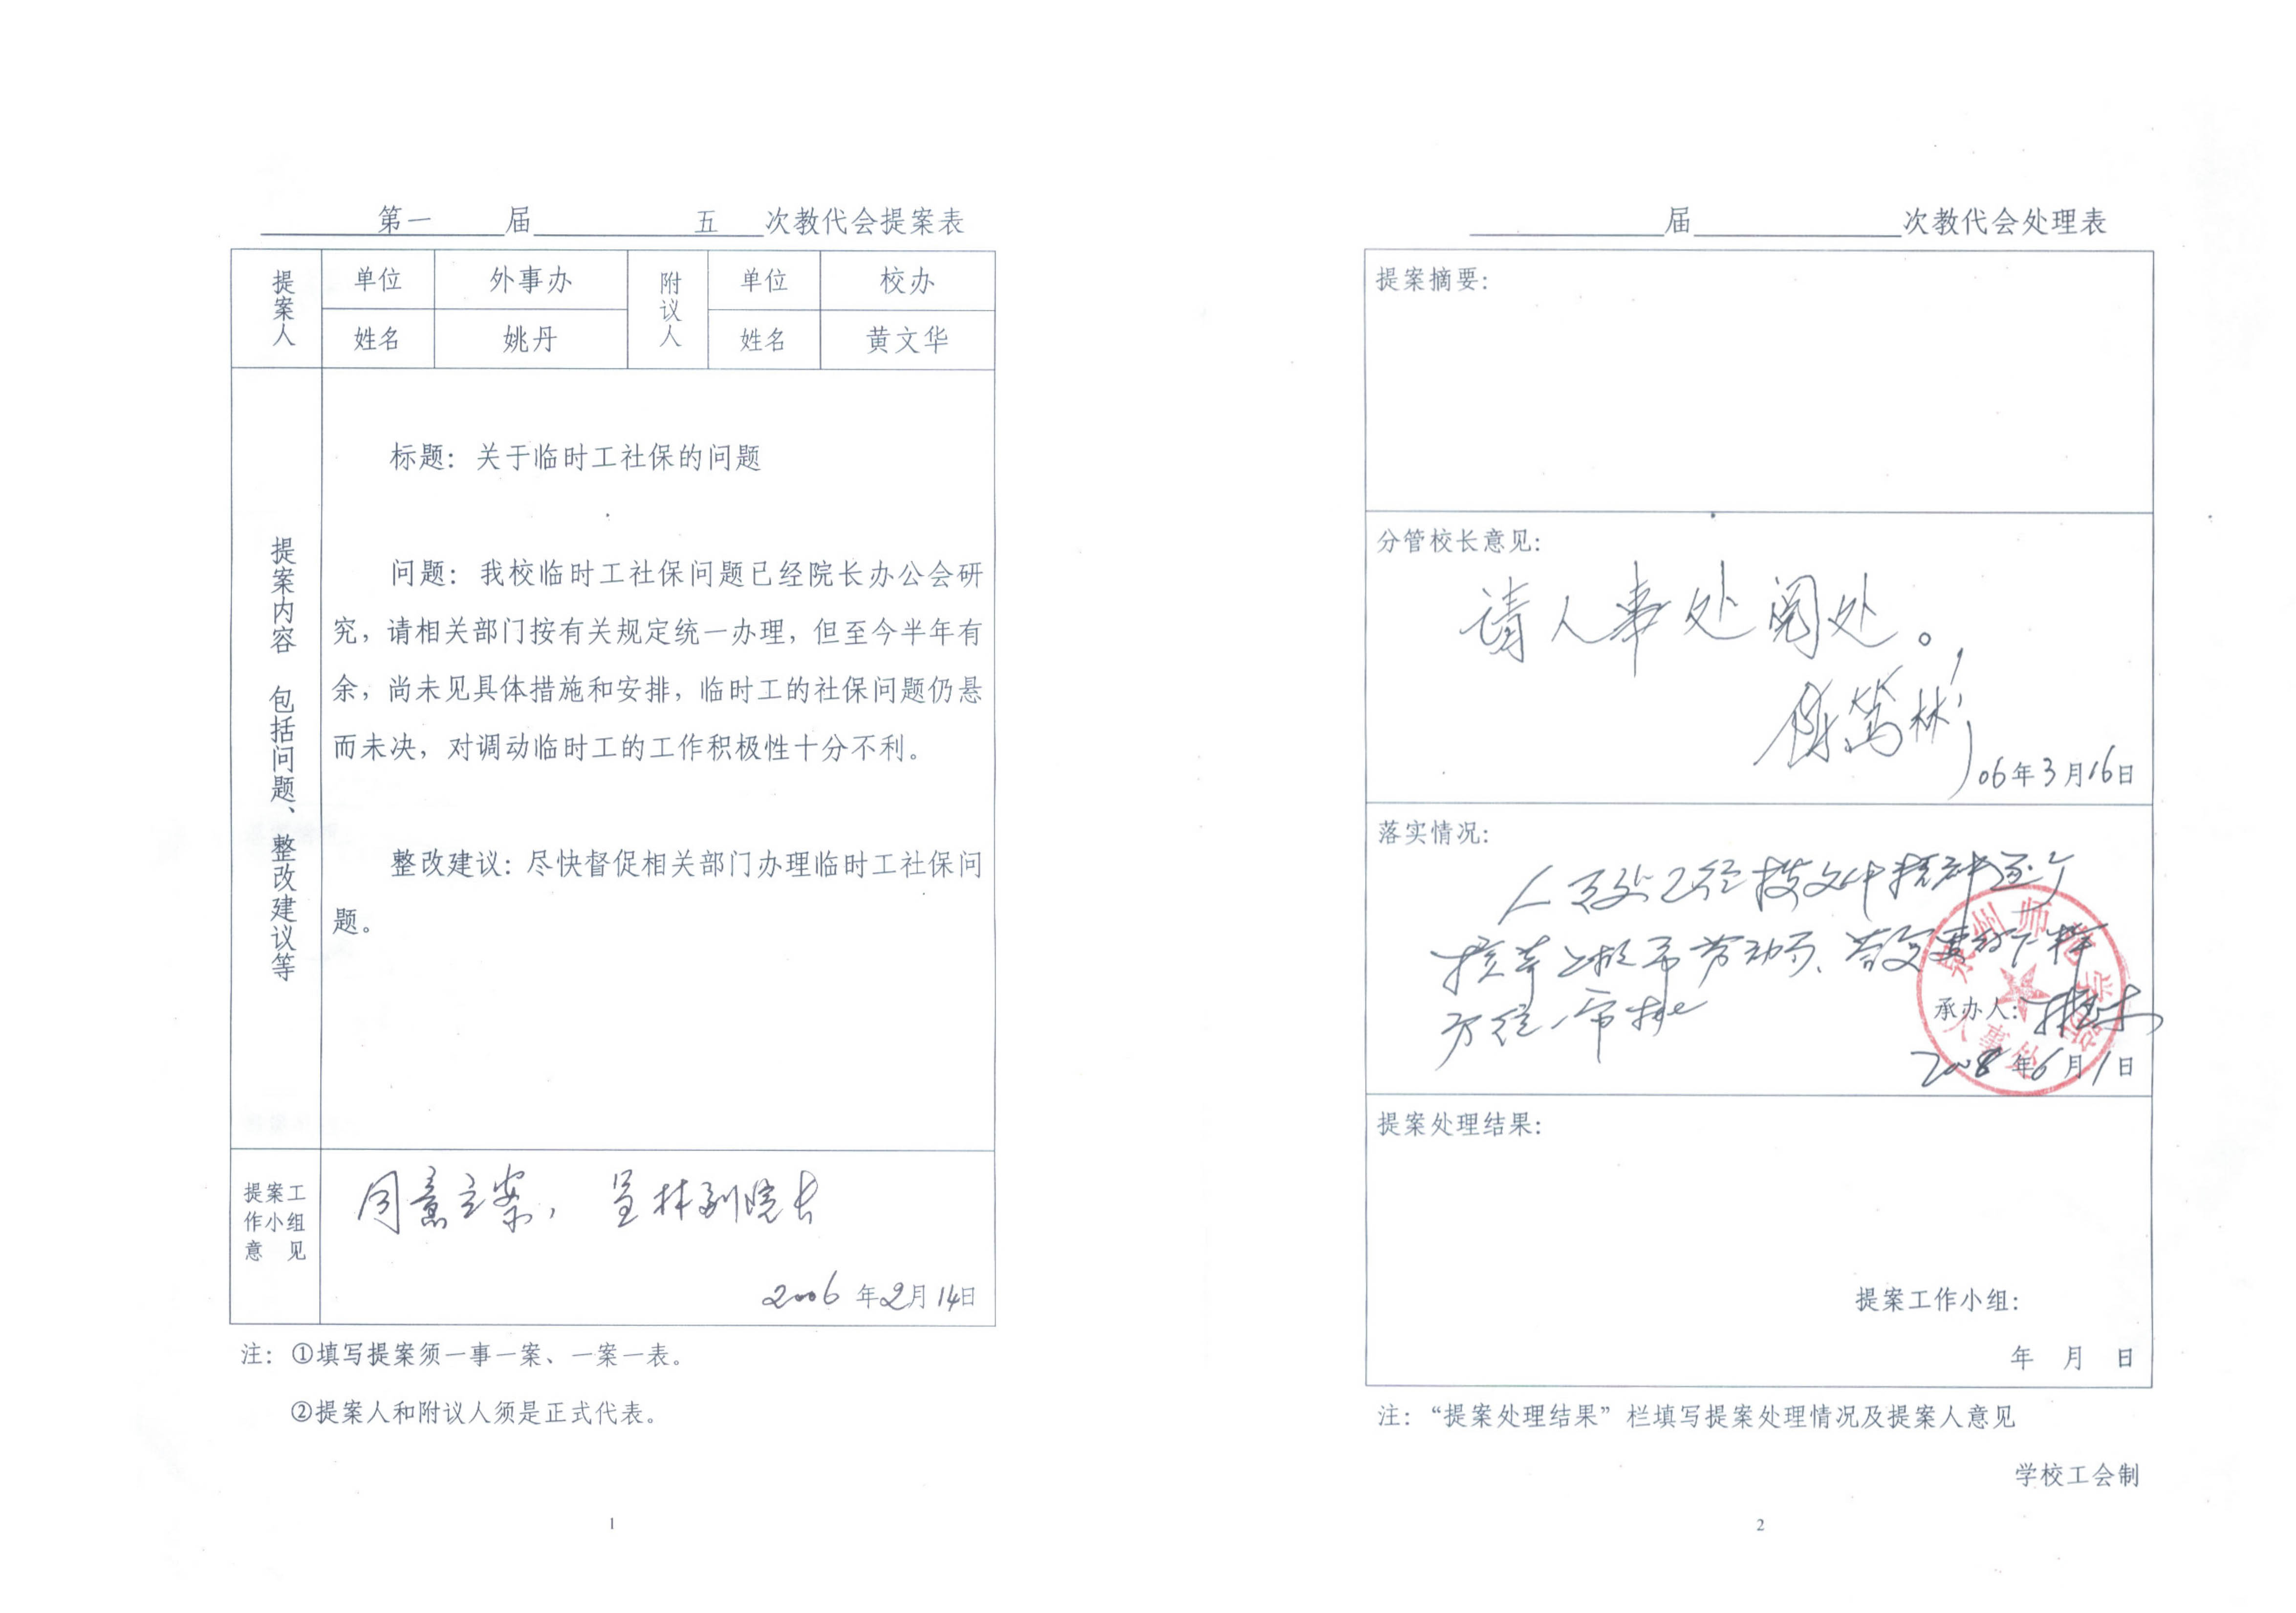 第一 届 五 次教代会提案表
提案人 单位 外事办 附议人 单位 校办
姓名 姚丹 姓名 黄文华
提案内容 包括问题、整改建议等
标题：关于临时工社保的问题
问题：我校临时工社保问题已经院长办公会研
究，请相关部门按有关规定统一办理，但至今半年有
余，尚未见具体措施和安排，临时工的社保问题仍悬
而未决，对调动临时工的工作积极性十分不利。
整改建议：尽快督促相关部门办理临时工社保问
题。
提案工
作小组
意 见
同意立案，呈林副院长
2006年2月14日
注：①填写提案须一事一案、一案一表。
②提案人和附议人须是正式代表。
1
届 次教代会处理表
提案摘要：
分管校长意见：
请人事处阅处。
06年3月16日
落实情况：
人事处已经按文件精神逐个
上报市劳动局、
审批
承办人：
年6月1日
泉州师范学院
人事处
提案处理结果：
提案工作小组：
年 月 日
注：“提案处理结果”栏填写提案处理情况及提案人意见
学校工会制
2